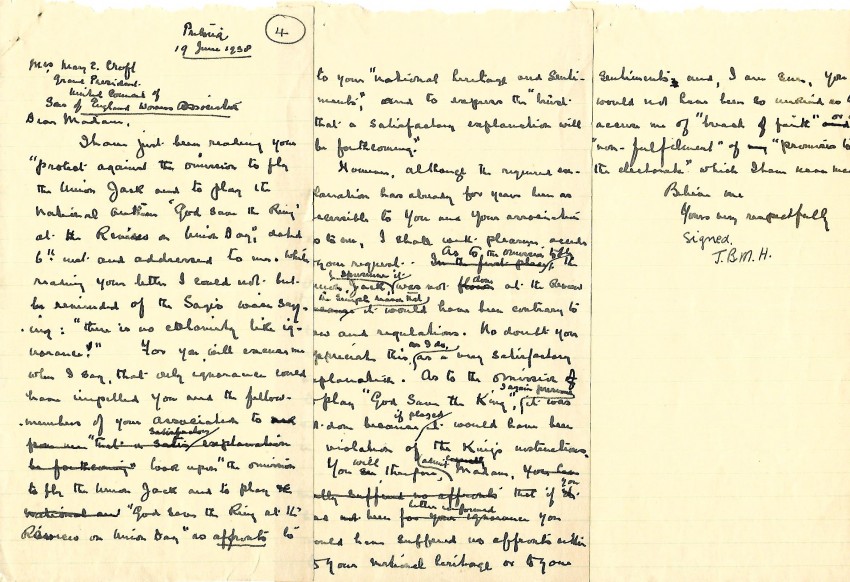 Pretoria
19 June 1938
4
Mrs Mary E. Croft
Grand President
United Council of
Sons of England Women Association
Dear Madam,
I have just been reading your
"protest against the omission to fly
the Union Jack and to play the
National Anthem "God Save the King"
at the Reviews on Union Day", dated
6th inst and addressed to me. While
reading your letter I could not but
be reminded of the Sage's wise say-
ing: "there is no calamity like ig-
norance!" For you will excuse me
when I say, that only ignorance could
have impelled you and the fellow-
members of your association to ask
satisfactory
from me "that a satis explanation
be forthcoming" look upon "the omission
to fly the Union Jack and to play the
national an "God Save the King at the
Reviews on Union Day" as affronts to
to your "national heritage and Senti-
ments", and to express the "trust
that a satisfactory explanation will
be forthcoming."
However, although the required ex-
planation has already for years been as
accessible to you and your association
as to me, I shall with pleasure accede
As to the omission to fly
your request. In the first place, the
I presume it
Union Jack, was not flown at the Review
the simple reason that
because it would have been contrary to
law and regulations. No doubt you
as I do,
appreciate this, as a very satisfactory
explanation. As to the omission of
I again presume
play "God Save the King", it was
if played
not done because it would have been
violation of the King's instructions.
will
You therefore, Madam,
you
suffered no affronts that if
better informed
had not been for your ignorance you
would have suffered no affronts either
to your national heritage or to your
sentiments, and, I am sure, you
would not have been so unkind as to
accuse me of "breach of faith" and
"non-fulfilment" of my "promises to
the electorate" which I have never made
Believe me
Yours very respectfully
Signed.
J.B.M.H.